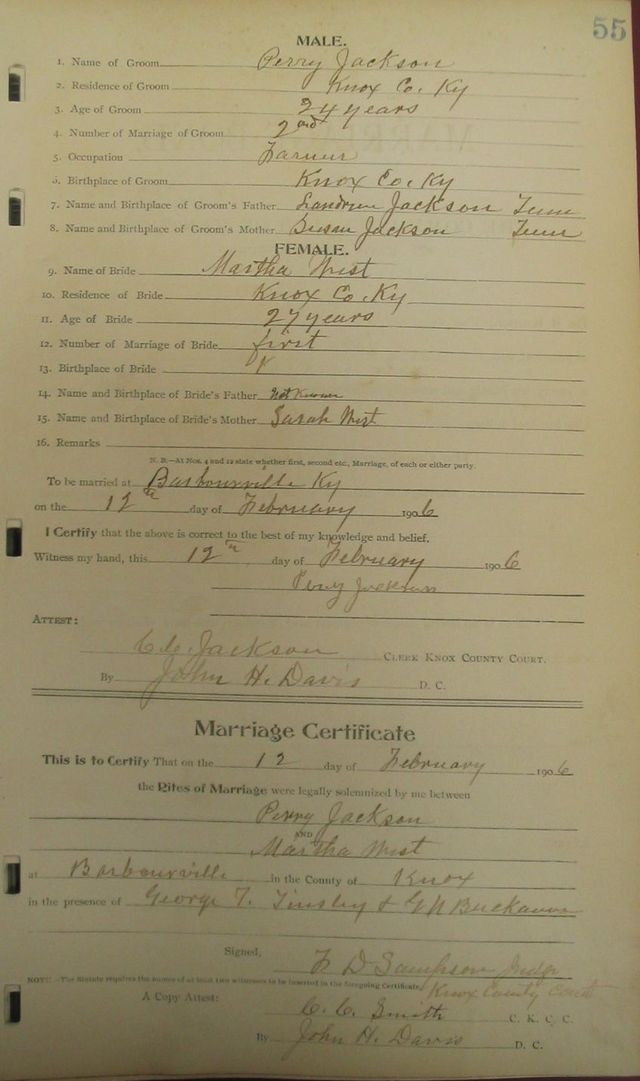 55
MALE.
1. Name of Groom Perry Jackson
2. Residence of Groom Knox Co. Ky
3. Age of Groom 24 years
4. Number of Marriage of Groom 2nd
5. Occupation Farmer
6. Birthplace of Groom Knox Co. Ky
7. Name and Birthplace of Groom's Father Jackson Tenn
8. Name and Birthplace of Groom's Mother Susan Jackson Tenn
FEMALE.
9. Name of Bride Martha West
10. Residence of Bride Knox Co. Ky
11. Age of Bride 27 years
12. Number of Marriage of Bride first
13. Birthplace of Bride
14. Name and Birthplace of Bride's Father Not Known
15. Name and Birthplace of Bride's Mother Sarah West
16. Remarks
N. B.—At Nos. 4 and 12 state whether first, second etc., Marriage, of each or either party.
To be married at Barbourville Ky
on the 12th day of February 1906
I Certify that the above is correct to the best of my knowledge and belief.
Witness my hand, this 12th day of February 1906
Perry Jackson
ATTEST:
Jackson CLERK KNOX COUNTY COURT.
By John H. Davis D. C.
Marriage Certificate
This is to Certify That on the 12 day of February 1906
the Rites of Marriage were legally solemnized by me between
Perry Jackson
AND
Martha West
at Barbourville in the County of Knox
in the presence of George T. Tinsley &
Signed, F D Sampson Judge
NOTE:—The Statute requires the names of at least two witnesses to be inserted in the foregoing Certificate. Knox County Court
A Copy Attest: C. C. Smith C. K. C. C.
By John H. Davis D. C.